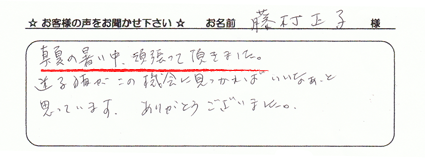 ☆ お客様の声をお聞かせ下さい ☆ お名前 藤村正子 様
真夏の暑い中、頑張って頂きました。
迷子猫がこの機会に見つかればいいなぁと
思っています。ありがとうございました。